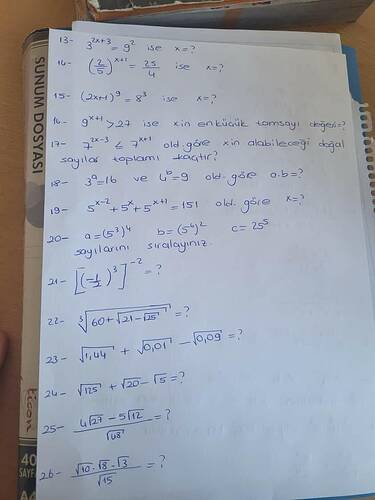 13- 3^(2x+3) = 9^2 ise x=?
14- (2/5)^(x+1) = 25/4 ise x=?
15- (2x+1)^9 = 8^3 ise x=?
16- 9^(x+1) > 27 ise x in en küçük tamsayı değeri=?
17- 7^(2x-3) ≤ 7^(x+1) old. göre x in alabileceği doğal
sayılar toplamı kaçtır?
18- 3^a = 16 ve 4^b = 9 old. göre a.b=?
19- 5^(x-2) + 5^x + 5^(x+1) = 151 old. göre x=?
20- a=(5^3)^4 b=(5^4)^2 c=25^5
sayılarını sıralayınız.
21- [(-1/2)^3]^(-2) = ?
22- ∛(60+√(21-√25)) = ?
23- √1,44 + √0,01 - √0,09 = ?
24- √125 + √20 - √5 = ?
25- (4√27 - 5√12)/√48 = ?
26- (√10 · √8 · √3)/√15 = ?
SUNUM DOSYASI
ticon
40
SAYFA
A4